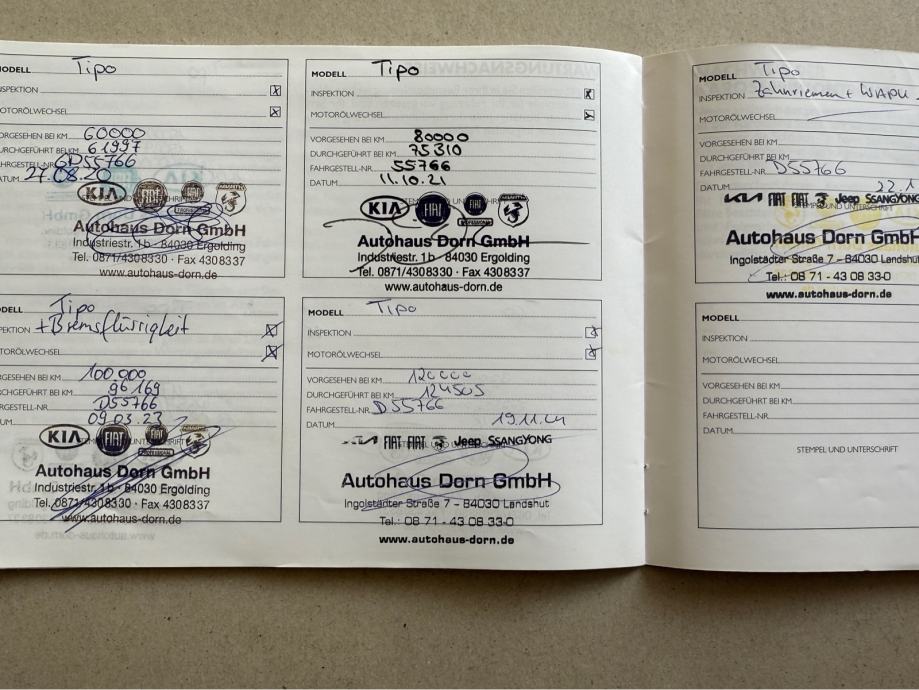 MODELL Tipo
INSPEKTION
MOTORÖLWECHSEL
VORGESEHEN BEI KM 60000
DURCHGEFÜHRT BEI KM 61997
FAHRGESTELL-NR. 6D55766
DATUM 27.08.20
KIA FIAT ABARTH
Autohaus Dorn GmbH
Industriestr. 1b · 84030 Ergolding
Tel. 0871/4308330 · Fax 4308337
www.autohaus-dorn.de
MODELL Tipo
INSPEKTION
MOTORÖLWECHSEL
VORGESEHEN BEI KM 80000
DURCHGEFÜHRT BEI KM 75310
FAHRGESTELL-NR. 55766
DATUM 11.10.21
KIA FIAT
Autohaus Dorn GmbH
Industriestr. 1b · 84030 Ergolding
Tel. 0871/4308330 · Fax 4308337
www.autohaus-dorn.de
MODELL Tipo
INSPEKTION + Bremsflüssigkeit
MOTORÖLWECHSEL
VORGESEHEN BEI KM 100000
DURCHGEFÜHRT BEI KM 96169
FAHRGESTELL-NR. D55766
DATUM 09.03.23
KIA FIAT
Autohaus Dorn GmbH
Industriestr. 1b · 84030 Ergolding
Tel. 0871/4308330 · Fax 4308337
www.autohaus-dorn.de
MODELL Tipo
INSPEKTION
MOTORÖLWECHSEL
VORGESEHEN BEI KM 120000
DURCHGEFÜHRT BEI KM 124505
FAHRGESTELL-NR. D55766
DATUM 19.11.24
KIA FIAT FIAT Jeep SSANGYONG
Autohaus Dorn GmbH
Ingolstädter Straße 7 – 84030 Landshut
Tel.: 08 71 - 43 08 33-0
www.autohaus-dorn.de
MODELL Tipo
INSPEKTION Zahnriemen + WAPU
MOTORÖLWECHSEL
VORGESEHEN BEI KM
DURCHGEFÜHRT BEI KM
FAHRGESTELL-NR. D55766
DATUM 22.1
KIA FIAT FIAT Jeep SSANGYONG
STEMPEL UND UNTERSCHRIFT
Autohaus Dorn GmbH
Ingolstädter Straße 7 – 84030 Landshut
Tel.: 08 71 - 43 08 33-0
www.autohaus-dorn.de
MODELL
INSPEKTION
MOTORÖLWECHSEL
VORGESEHEN BEI KM
DURCHGEFÜHRT BEI KM
FAHRGESTELL-NR.
DATUM
STEMPEL UND UNTERSCHRIFT